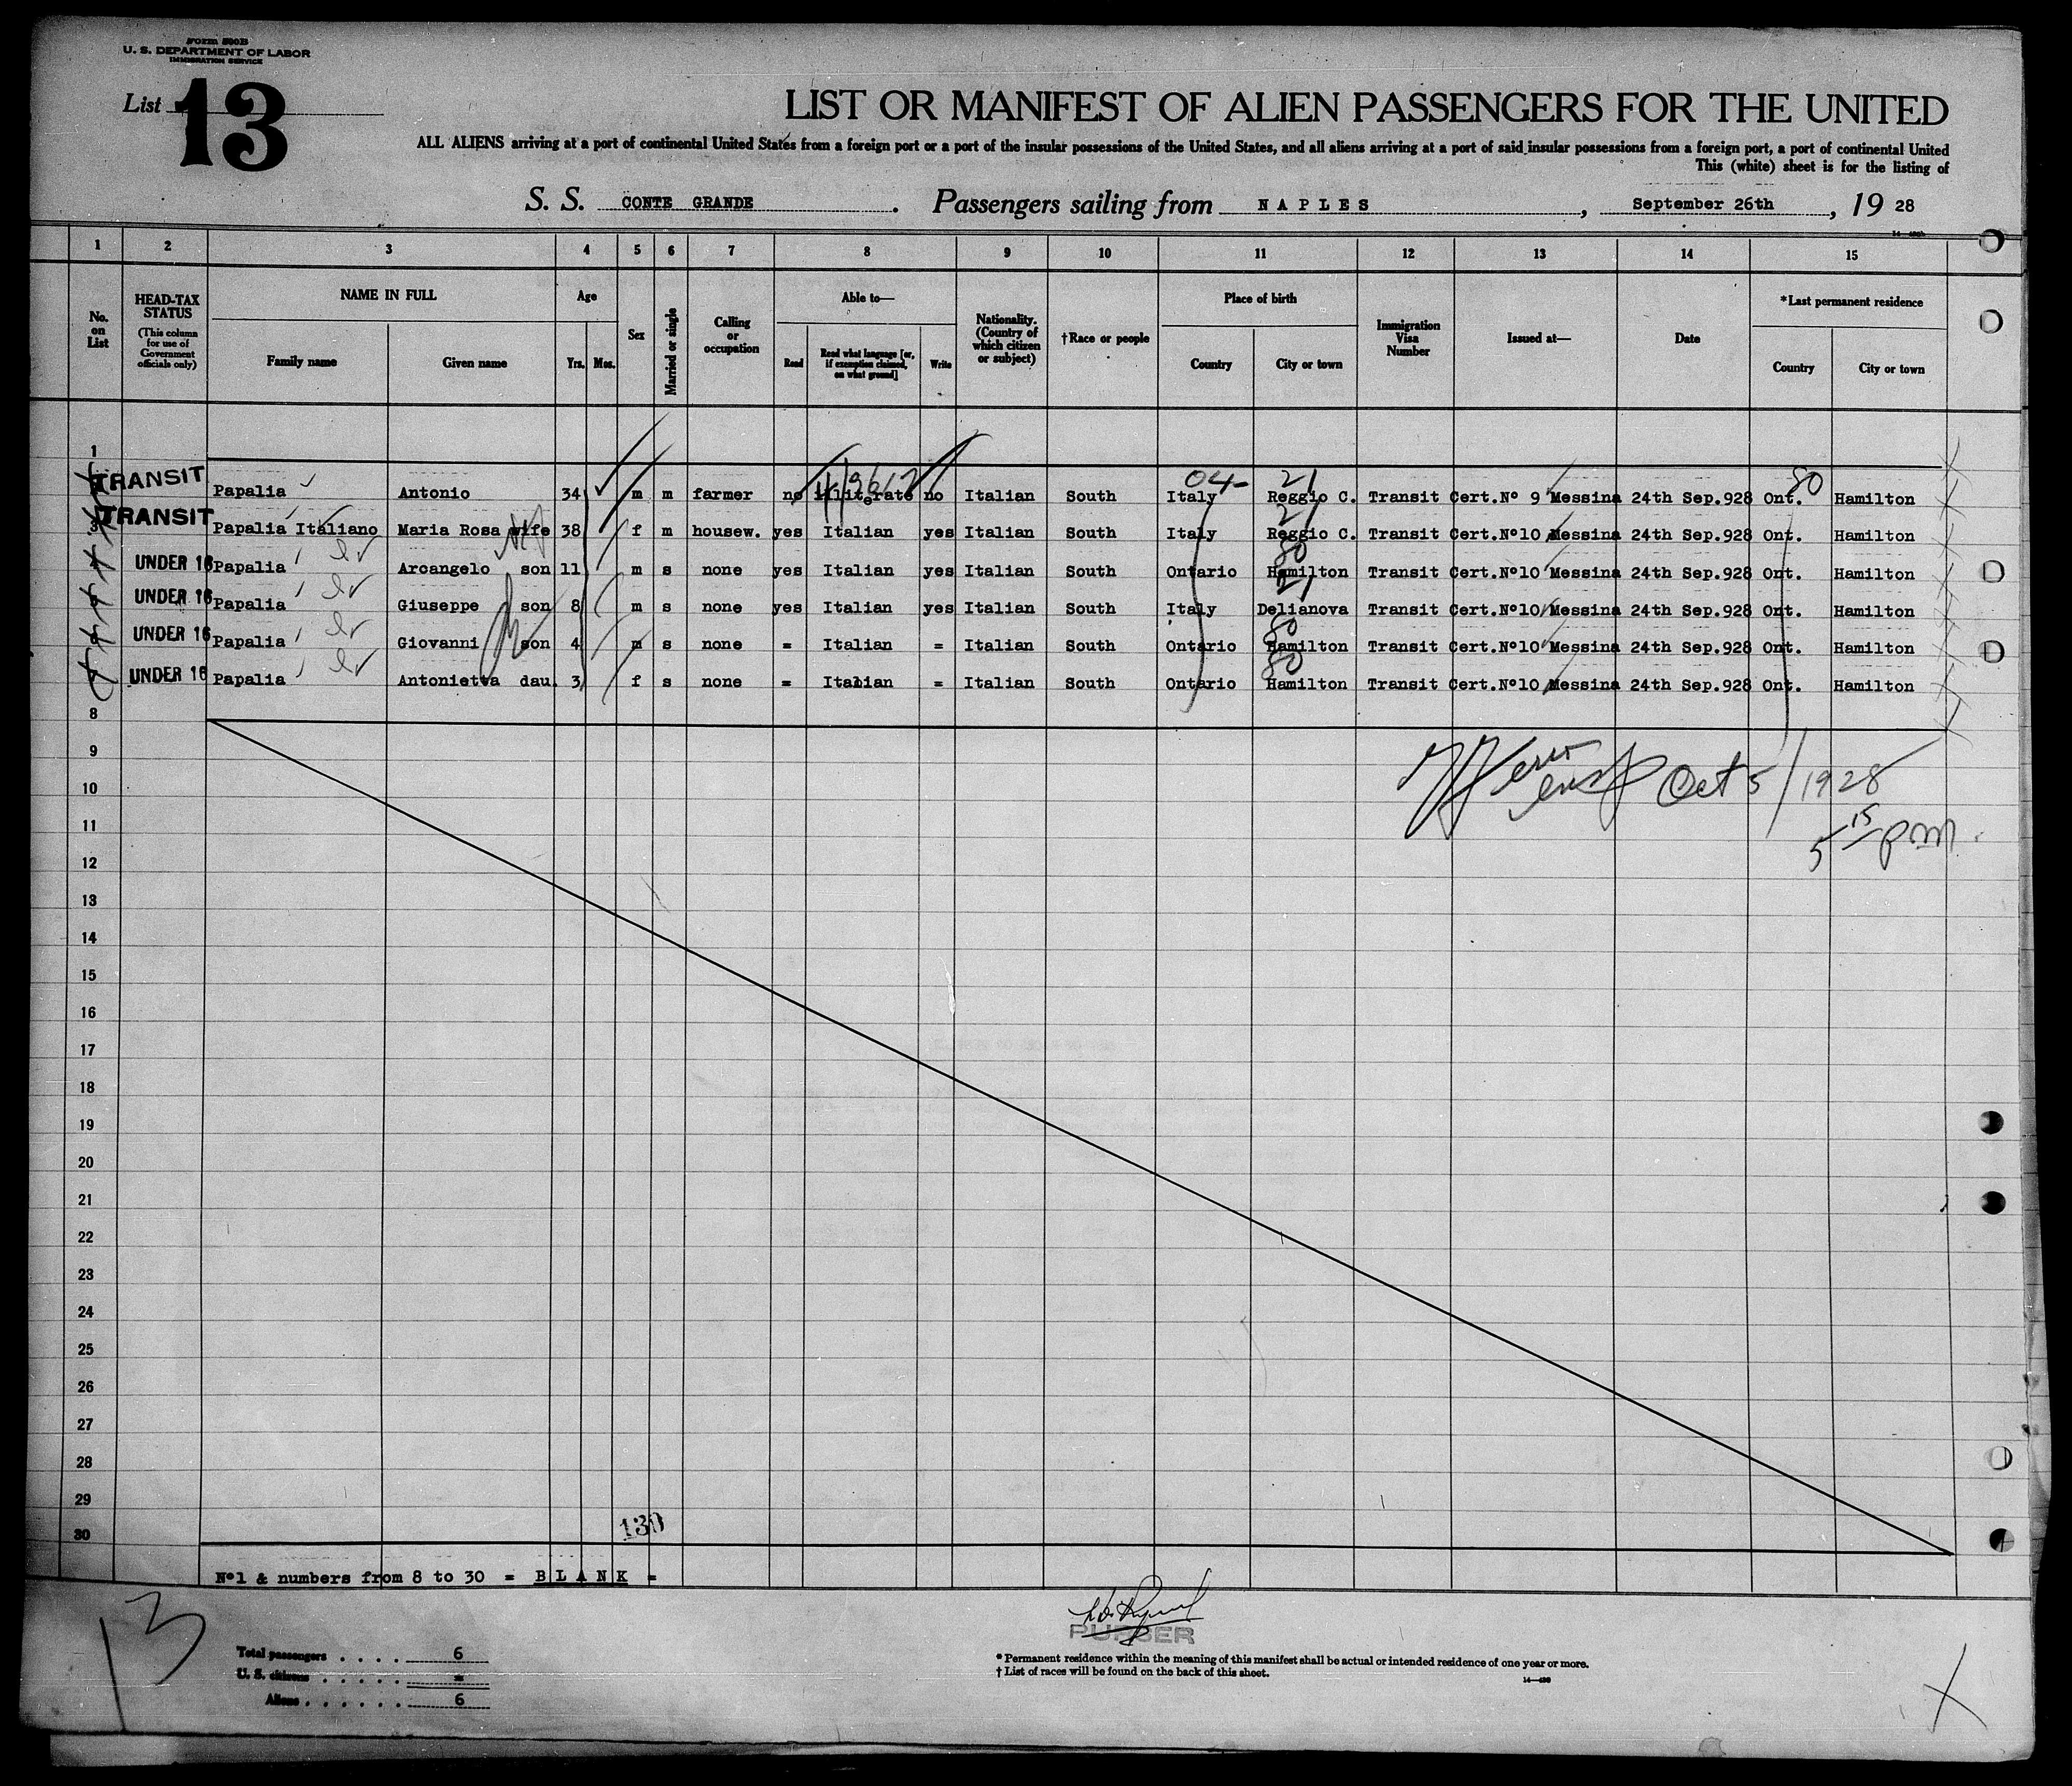 Form 500B
U. S. DEPARTMENT OF LABOR
IMMIGRATION SERVICE
List 13
LIST OR MANIFEST OF ALIEN PASSENGERS FOR THE UNITED
ALL ALIENS arriving at a port of continental United States from a foreign port or a port of the insular possessions of the United States, and all aliens arriving at a port of said insular possessions from a foreign port, a port of continental United
This (white) sheet is for the listing of
S. S. CONTE GRANDE . Passengers sailing from NAPLES , September 26th , 19 28
1 2 3 4 5 6 7 8 9 10 11 12 13 14 15
No. on List
HEAD-TAX STATUS
(This column for use of Government officials only)
NAME IN FULL
Family name
Given name
Age
Yrs. Mos.
Sex
Married or single
Calling or occupation
Able to—
Read
Read what language [or, if exemption claimed, on what ground]
Write
Nationality. (Country of which citizen or subject)
†Race or people
Place of birth
Country
City or town
Immigration Visa Number
Issued at—
Date
*Last permanent residence
Country
City or town
1
04- 21 80
TRANSIT Papalia Antonio 34 m m farmer no illiterate no Italian South Italy Reggio C. Transit Cert.Nº 9 Messina 24th Sep.928 Ont. Hamilton
21
3 TRANSIT Papalia Italiano Maria Rosa wife 38 f m housew. yes Italian yes Italian South Italy Reggio C. Transit Cert.Nº10 Messina 24th Sep.928 Ont. Hamilton
80
UNDER 16 Papalia Arcangelo son 11 m s none yes Italian yes Italian South Ontario Hamilton Transit Cert.Nº10 Messina 24th Sep.928 Ont. Hamilton
21
UNDER 16 Papalia Giuseppe son 8 m s none yes Italian yes Italian South Italy Delianova Transit Cert.Nº10 Messina 24th Sep.928 Ont. Hamilton
80
UNDER 16 Papalia Giovanni son 4 m s none = Italian = Italian South Ontario Hamilton Transit Cert.Nº10 Messina 24th Sep.928 Ont. Hamilton
80
UNDER 16 Papalia Antonietta dau. 3 f s none = Italian = Italian South Ontario Hamilton Transit Cert.Nº10 Messina 24th Sep.928 Ont. Hamilton
8
9
Oct 5/1928
10
5 15 pm
11
12
13
14
15
16
17
18
19
20
21
22
23
24
25
26
27
28
29
130
30
Nº1 & numbers from 8 to 30 = BLANK =
13
PURSER
Total passengers . . . . 6
U. S. citizens . . . . . =
Aliens . . . . . . 6
* Permanent residence within the meaning of this manifest shall be actual or intended residence of one year or more.
† List of races will be found on the back of this sheet.